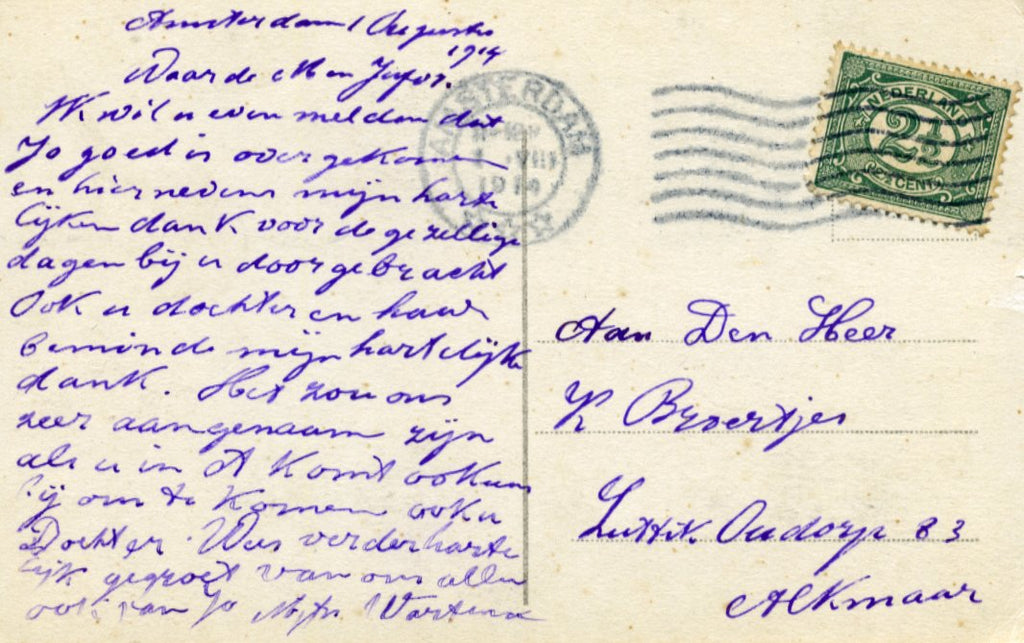 Amsterdam 1 Augustus
1914
Waarde M en Jufvr.
Ik wil u even melden dat
Jo goed is overgekomen
en hiernevens mijn harte
lijken dank voor de gezellige
dagen bij u doorgebracht
Ook u dochter en haar
beminde mijn hartelijke
dank. Het zou ons
zeer aangenaam zijn
als u in A komt ook eens
bij om te komen ook u
Dochter. Wees verder harte
lijk gegroet van ons allen
ook van Jo
AMSTERDAM
VIII
1914
NEDERLAND
2½
CENT
Aan Den Heer
K Broertjes
Luttik Oudorp 83
Alkmaar